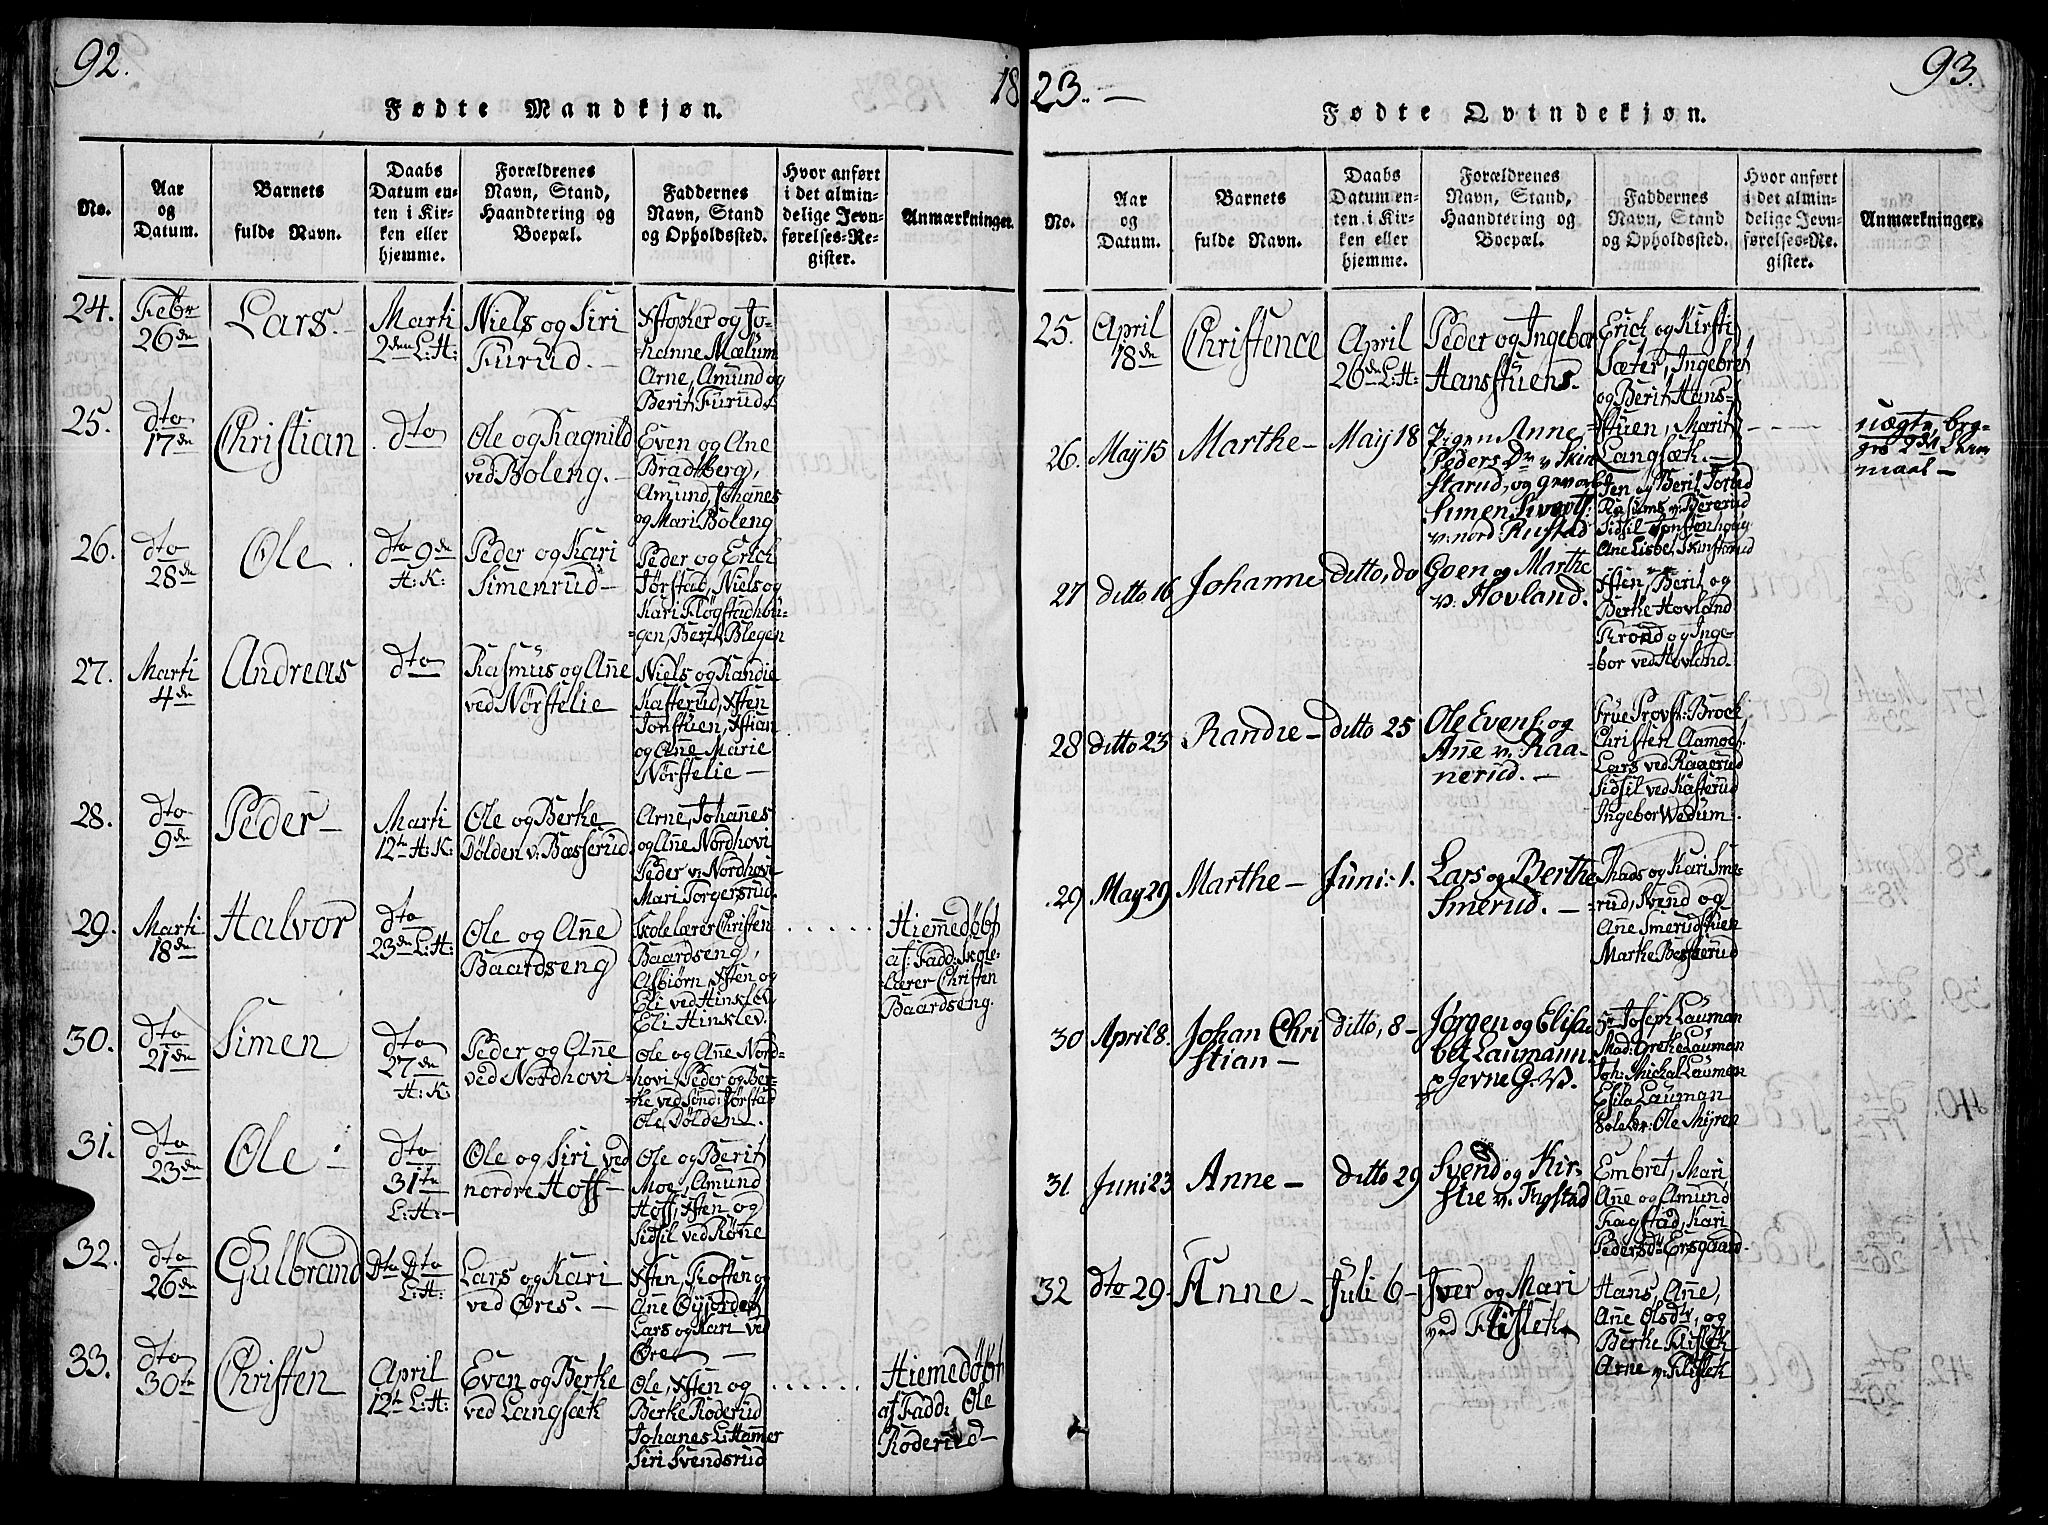 92.
18
Fødte Mandkjøn.
No.
Aar
og
Datum.
Barnets
fulde Navn.
Daabs
Datum en-
ten i Kir-
ken eller
hjemme.
Forældrenes
Navn, Stand,
Haandtering og
Boepæl.
Faddernes
Navn, Stand
og Opholdssted.
Hvor anført
i det almin-
delige Jevn-
førelses-Re-
gister.
Anmærkninger.
24.
Febr
26de
Lars.
Marti
2den L:H:
Niels og Siri
Furud.
Xstopher og Jo-
hanne Mælum
Arne, Amund og
Berit Furud
25.
dto
17de
Christian
dto
Ole og Ragnild
ved Boleng.
Even og Ane
Bradtberg,
Amund, Johanes
og Mari Boleng
26.
dto
28de
Ole.
dto 9de
H:K:
Peder og Kari
Simenrud
Peder og Erich
Jørstad, Niels og
Kari Fløgstadhou-
gen, Berit Blegen
27.
Marti
4de
Andreas
dto
Rasmus og Añe
ved Nørstelie
Niels og Randie
Kasterud, Xsten
Jonstuen, Xstian
og Añe Marie
Nørstelie
28.
dto
9de
Peder
Marti
12te H:K:
Ole og Berthe
Dølden v: Bæsserud.
Arne, Johañes
og Añe Nordhovi
Peder v: Nordhovi
Mari Torgersrud.
29.
Marti
18de
Halvor
dto
23de L:H:
Ole og Añe
Baardseng
Skolelærer Christen
Baardseng,
Asbiørn Xsten og
Eli ved Hinklev
Eli Hinklev.
Hiem̃edøbt
af: Fadd: Skole-
lærer Christen
Baardseng.
30.
dto
21de
Simen
dto
27de
H:K:
Peder og Añe
ved Nordhovi
Ole og Añe Nord-
hovi, Peder og Ber-
the ved Sønd: Jørstad
Ole Dølden.
31.
dto
23de
Ole
dto
31te
L:H:
Ole og Siri ved
nordre Hoff
Ole og Berit
Moe, Amund
Hoff, Xsten og
Sidsil ved Røhe
32.
dto
26de
Gulbrand
dto dto
L:H:
Lars og Kari
ved Øres.
Xsten, Torsten og
Ane Øyjordet
Lars og Kari ved
Øre
33.
dto
30te
Christen
April
12te L:H:
Even og Berthe
ved Langsæth
Ole, Xsten og
Berthe Roderud
Johanes L:Ham̃er
Siri Svendsrud
Hiem̃edøbt
af Fadd: Ole
Roderud
23.
93.
Fødte Qvindekjøn.
No.
Aar
og
Datum.
Barnets
fulde Navn.
Daabs
Datum en-
ten i Kir-
ken eller
hjemme.
Forældrenes
Navn, Stand,
Haandtering og
Boepæl.
Faddernes
Navn, Stand
og Opholdssted.
Hvor anført
i det almin-
delige Jevn-
førelses-Re-
gister.
Anmærkninger.
25.
April
18de
Christence
April
26de L:H:
Peder og Ingebor
Hansstuens.
Erich og Kirsti
Sæter, Ingebret
og Berit Hans-
stuen, Marit
Langsæth.
26.
May 15
Marthe
May 18
Pigen Anne
Peders Dr v. Skin
starud, og
Simen Siverts:
v: nord: Rustad
Sten og Berit
Sidsil
Ane Lisbet, Skinstarud
uægte,
maal
27
ditto 16
Johanne
ditto, do
Goen og Marthe
v: Hovland.
Xsten, Berit og
Berthe Hovland
Trond og Inge-
bor ved Hovland.
28
ditto 23
Randie
ditto 25
Ole Evens: og
Añe v. Raa-
nerud.
Frue Provst: Brock
Christen Aamodt
Lars ved Raanerud
Sidsil ved Kasterud
Ingebor Wedum.
29
May 29
Marthe
Juni: 1.
Lars og Berthe
Smerud.
Mads og Kari Sme-
rud, Svend og
Añe Smerudstuen
Marthe Besserud
30
April 8.
Johan Chri
stian
ditto, 8
Jørgen og Elisa
bet Laumann
p Jevne G.V.
Hr Joseph Lauman
Mad: Grethe Lauman
Joh: Michal Lauman
Elisa Lauman
Skolelær: Ole Myren
31
Juni 23
Anne
ditto 29
Svend og Kir-
stie v. Fagstad
Embret, Mari,
Añe og Amund
Fagstad, Kari
Pedersdr Ensgaard.
32
dto 29
Anne
Juli 6
Iver og Mari
ved Flisleth
Hans, Añe,
Añe Olsdtr, og
Berthe Flisleth
Arne v. Flisleth